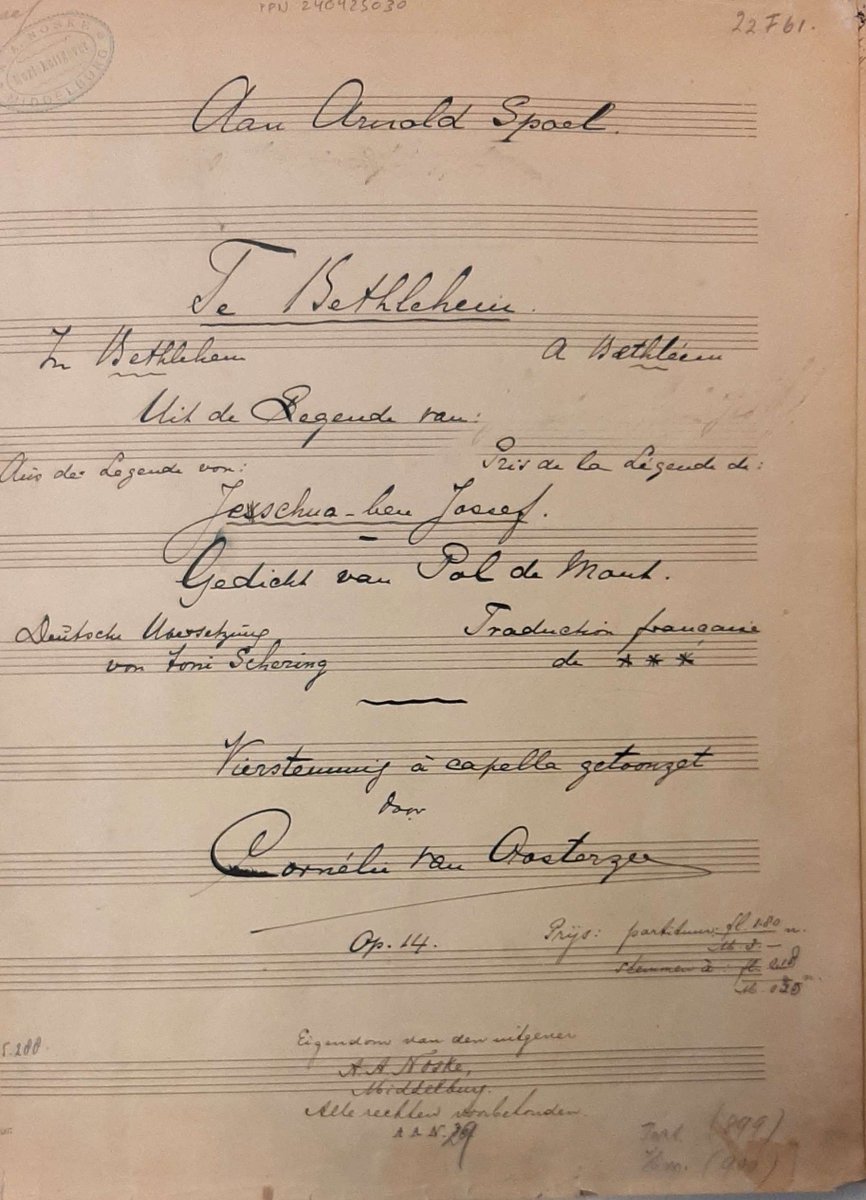 PPN 240425030
22 F 61.
A. A. NOSKE
MIDDELBURG
Aan Arnold Spoel.
Te Bethlehem.
In Bethlehem
A Bethléem
Uit de Legende van:
Aus der Legende von:
Pris de la Légende de:
Jeschua-ben Jossef.
Gedicht van Pol de Mont.
Deutsche Übersetzung
von Toni Schering
Traduction française
de * * *
Vierstemmig à capella getoonzet
door
Cornélie van Oosterzee
Op. 14.
Prijs: partituur: fl 1.80 n.
M 3.-
stemmen à: fl.
Eigendom van den uitgever
A. A. Noske,
Middelburg.
Alle rechten voorbehouden.
A A N. 29
(899)
(900)